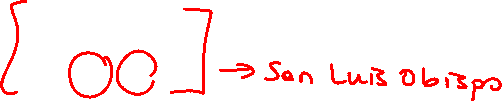 [ OC ] → San Luis Obispo